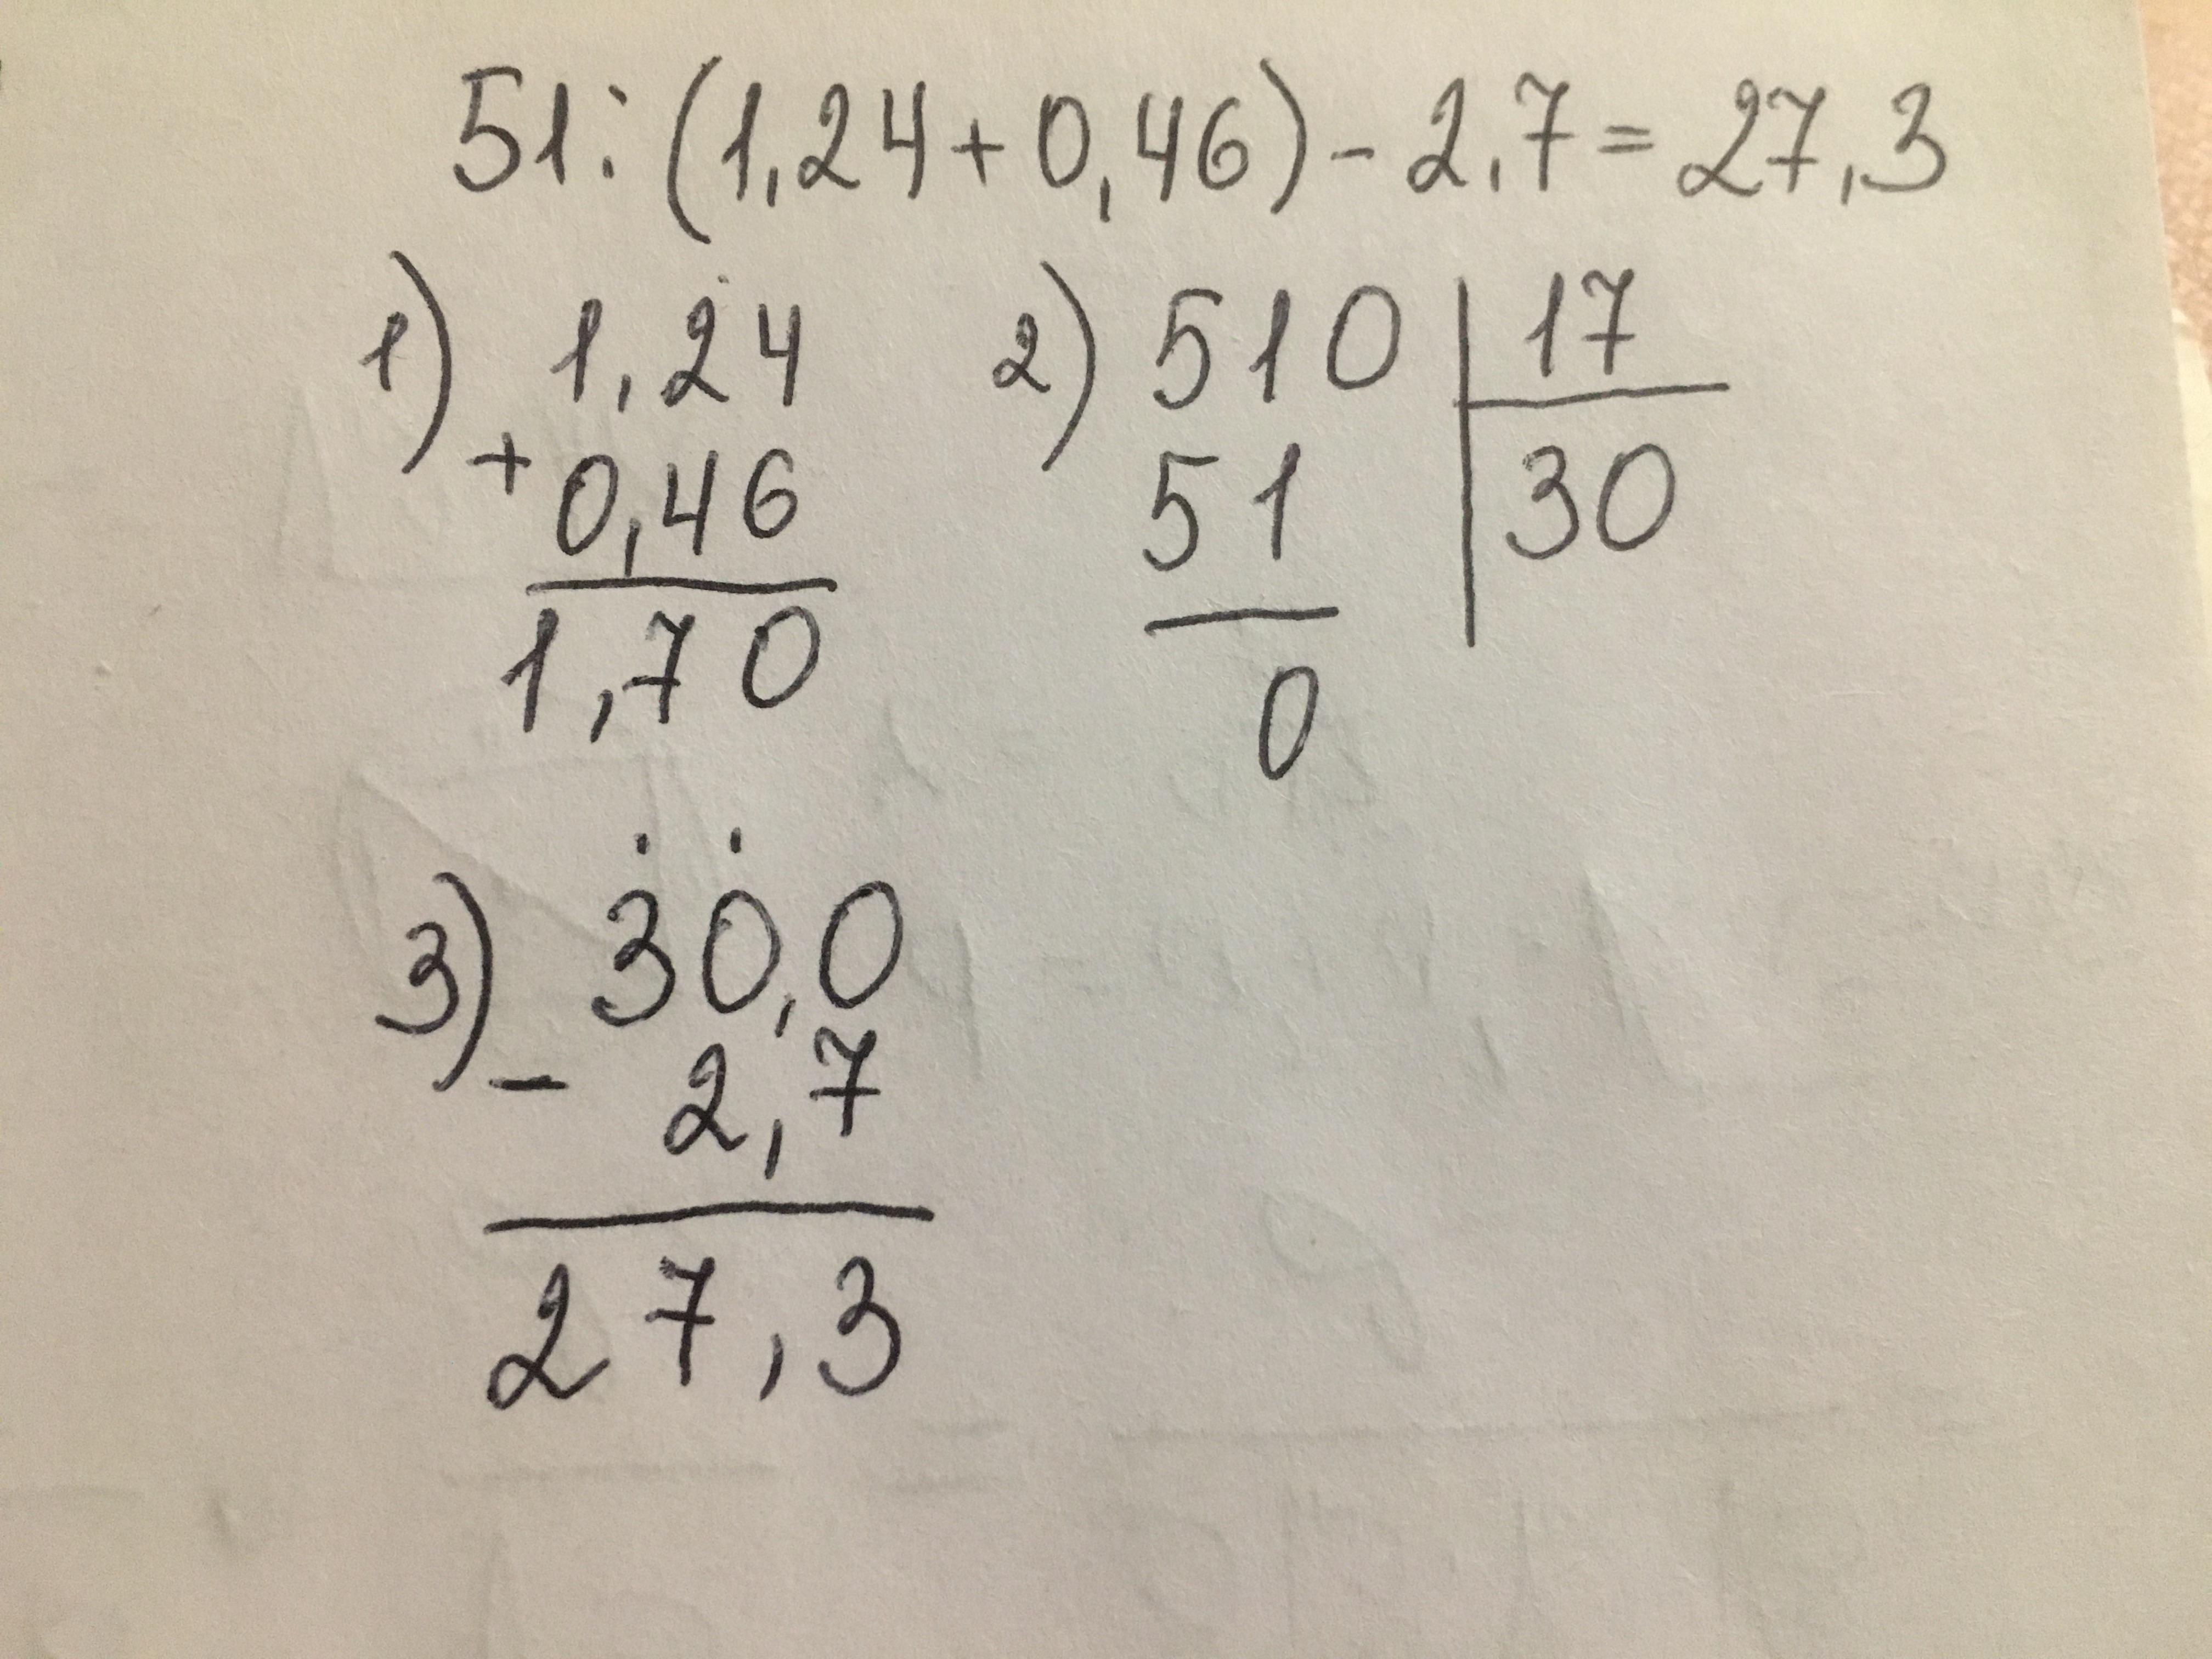 51:(1,24+0,46)-2,7=27,3
1) 1,24 2) 510 17
+0,46 51 30
1,70 0
3) 30,0
- 2,7
27,3